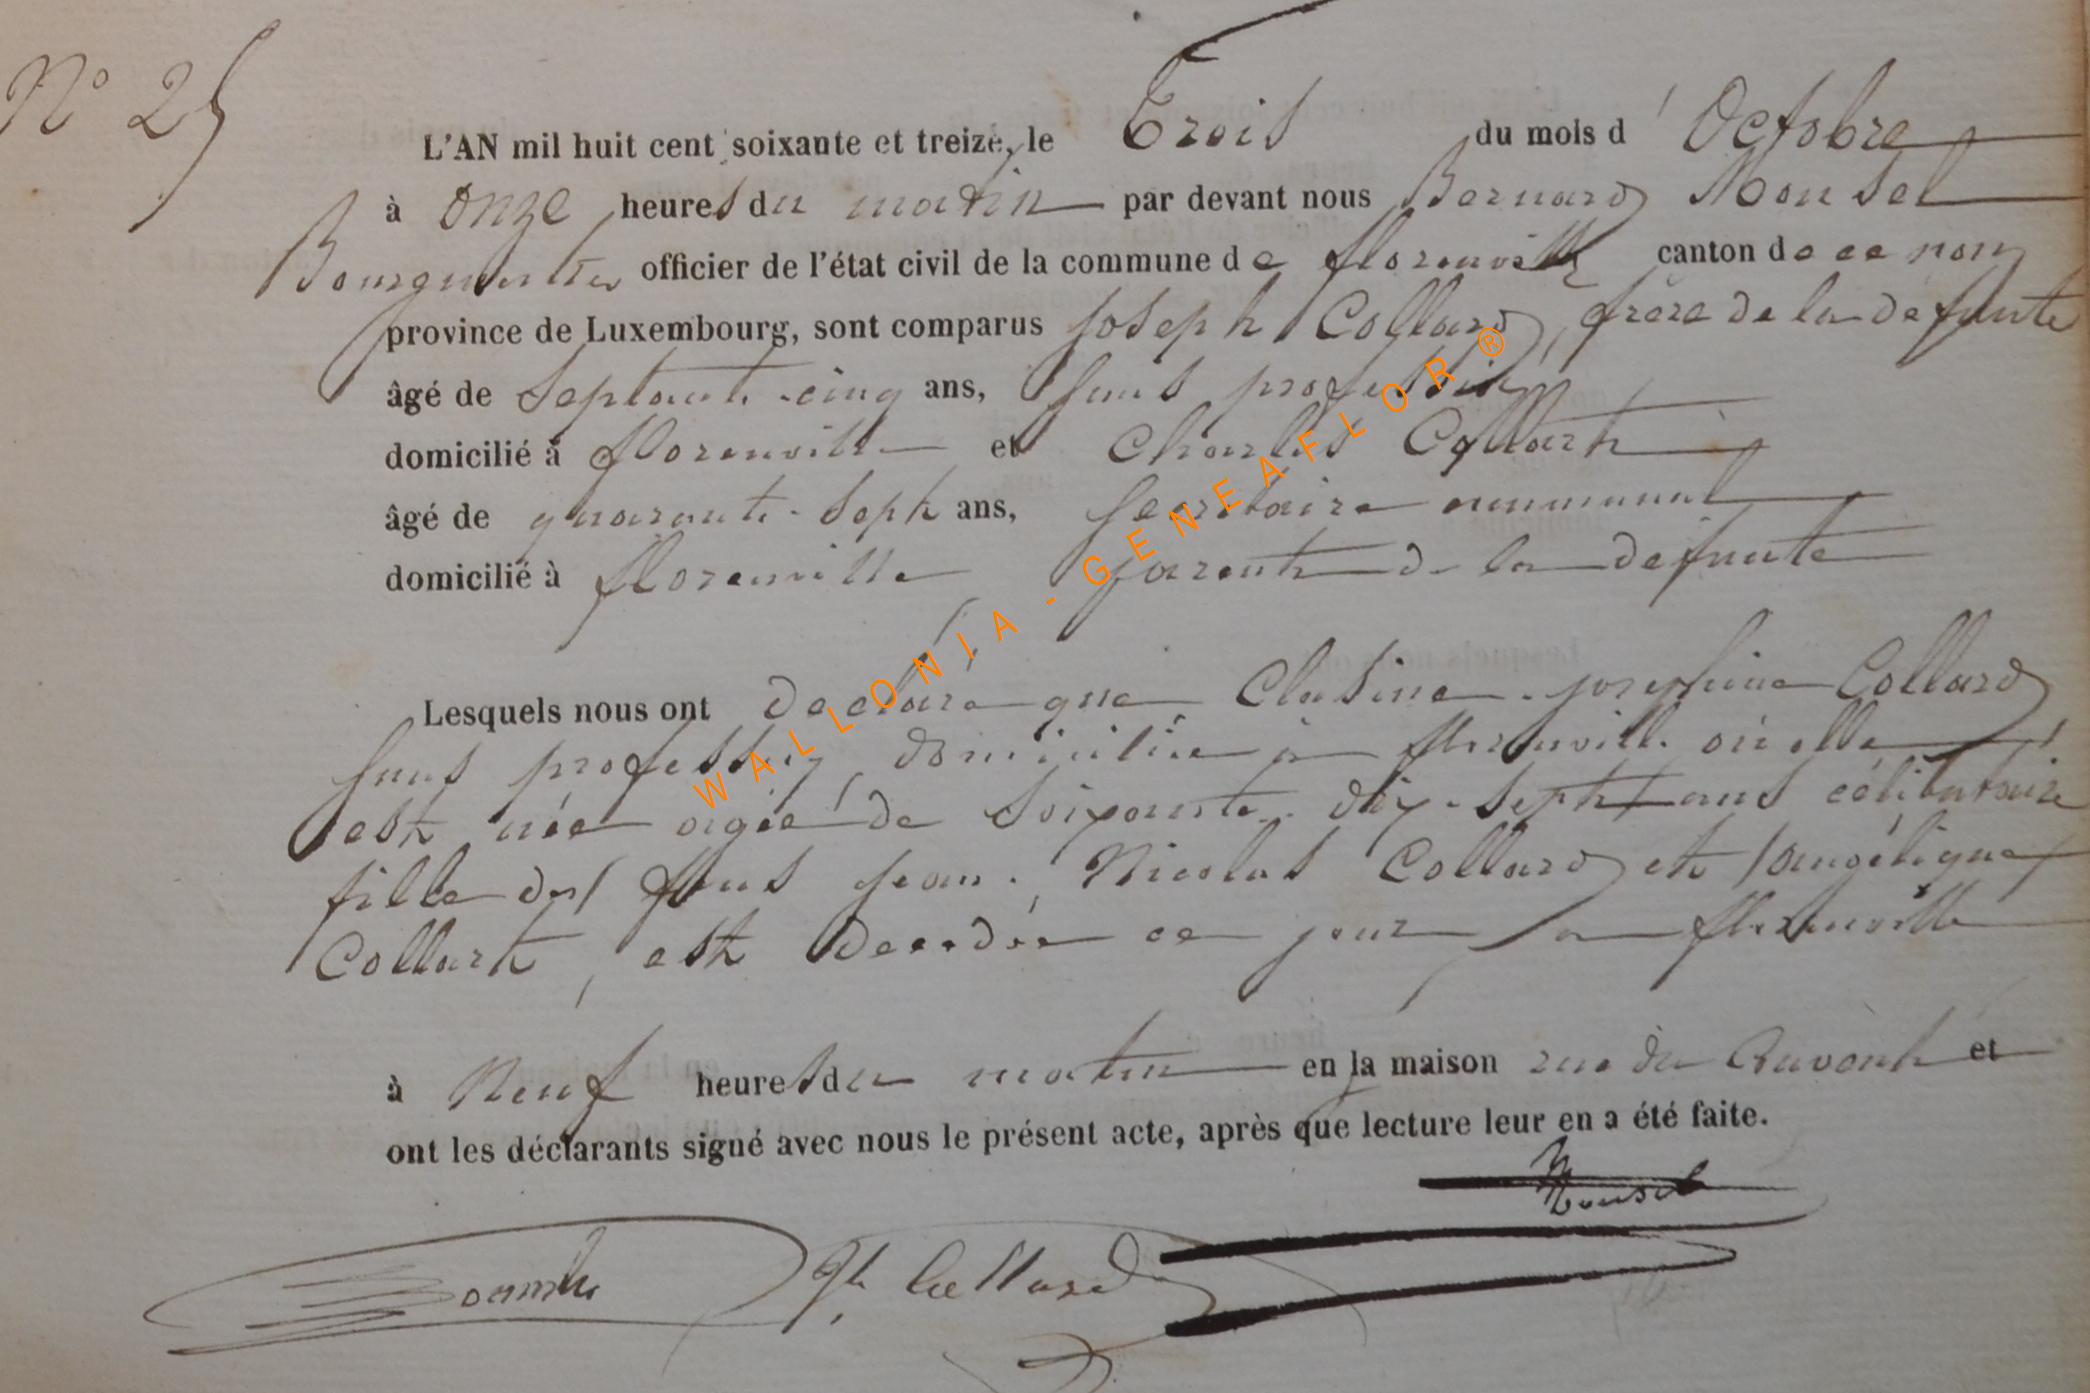 N° 25
L'AN mil huit cent soixante et treize, le Trois du mois d'Octobre
à onze heures du matin par devant nous Bernard Mousel
Bourgmestre officier de l'état civil de la commune de florenville canton de ce nom
province de Luxembourg, sont comparus Joseph Collard, frère de la défunte
âgé de septante-cinq ans, sans profession
domicilié à florenville et Charles Collart
âgé de quarante-sept ans, secrétaire communal
domicilié à florenville parent de la défunte
Lesquels nous ont déclaré que Josephine Collard
sans profession, domiciliée à florenville où elle
est née agée de soixante-dix-sept ans célibataire
fille des feus jean-Nicolas Collard et angélique
Collart, est décédée ce jour à florenville
à Neuf heures du matin en la maison rue du et
ont les déclarants signé avec nous le présent acte, après que lecture leur en a été faite.
Mousel
Collard
WALLONIA-GENEAFLOR®